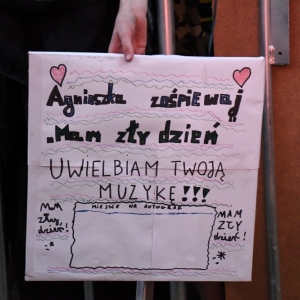 Agnieszka zaśpiewaj
„Mam zły dzień
UWIELBIAM TWOJĄ
MUZYKĘ!!!
MIEJSCE NA AUTOGRAF
MAM
zły
dzień!
MAM
ZŁY
dzień!